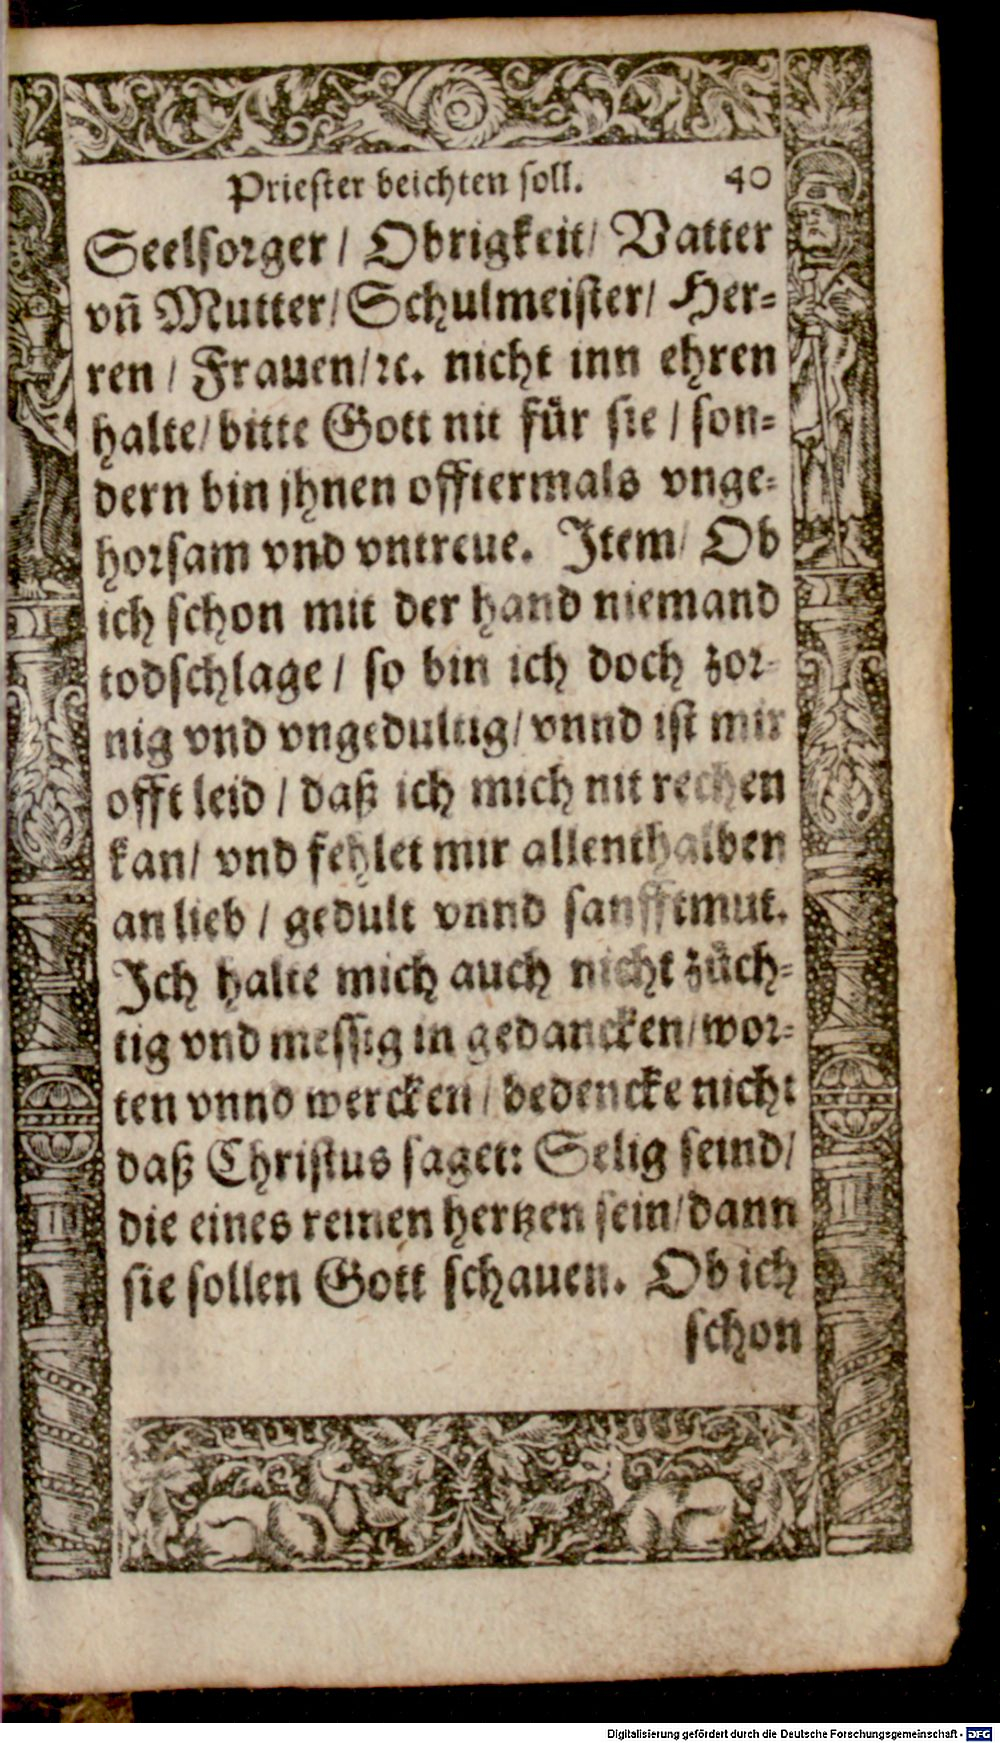 Priester beichten soll. 40
Seelsorger / Obrigkeit / Vatter
vñ Mutter / Schulmeister / Her-
ren / Frauen / ꝛc. nicht inn ehren
halte / bitte Gott nit für sie / son-
dern bin jhnen offtermals vnge-
horsam vnd vntreue. Item / Ob
ich schon mit der hand niemand
todschlage / so bin ich doch zor-
nig vnd vngedultig / vnnd ist mir
offt leid / daß ich mich nit rechen
kan / vnd fehlet mir allenthalben
an lieb / gedult vnnd sanfftmut.
Ich halte mich auch nicht züch-
tig vnd messig in gedancken / wor-
ten vnnd wercken / bedencke nicht
daß Christus saget: Selig seind /
die eines reinen hertzen sein / dann
sie sollen Gott schauen. Ob ich
schon
Digitalisierung gefördert durch die Deutsche Forschungsgemeinschaft - DFG